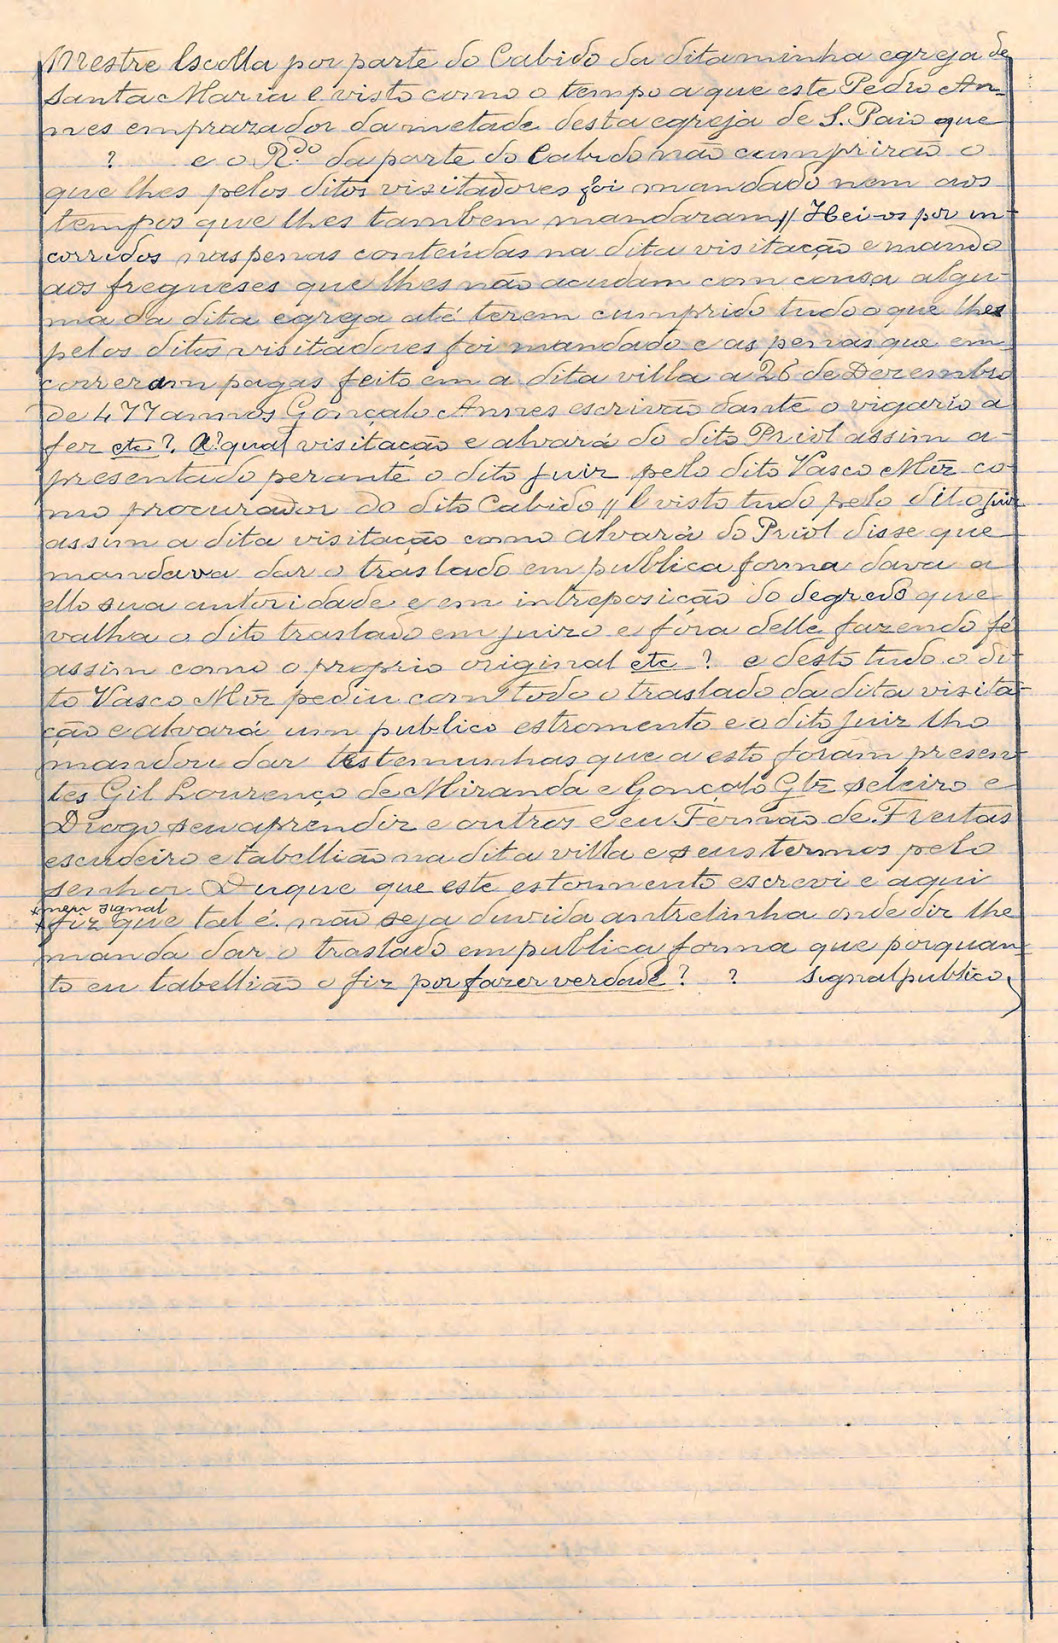 Mestre Escolla por parte do Cabido da dita minha egreja de
Santa Maria E visto como o tempo a que este Pedro An-
nes emprazador da metade desta egreja de S. Paio que
? e o R.do da parte do Cabido não cumprirão o
que lhes pelos ditos visitadores foi mandado nem aos
tempos que lhes tambem mandaram // Hei-os por in-
corridos nas penas conteúdas na dita visitação e mando
aos freguezes que lhes não acudam com cousa algu-
ma da dita egreja até terem cumprido tudo o que lhes
pelos ditos visitadores foi mandado e as penas que em
correram pagas feito em a dita villa a 26 de Dezembro
de 477 annos Gonçalo Annes escrivão dante o vigario a
fez etc ?. A? qual visitação e alvará do dito Priol assim a-
presentado perante o dito juiz pelo dito Vasco Mīz co-
mo procurador do dito Cabido // E visto tudo pelo dito juiz
assim a dita visitação como alvará do Priol disse que
mandava dar o traslado em publica forma dava a
ello sua autoridade e em intreposição do degredo que
valha o dito traslado em juizo e fóra delle fazendo fé
assim como o proprio original etc ? e desto tudo o di-
to Vasco Mīz pediu com todo o traslado da dita visita-
ção e alvará um publico estromento e o dito juiz lho
mandou dar testemunhas que a esto foram presen-
tes Gil Lourenço de Miranda e Gonçalo Glz seleiro e
Diogo seu aprendiz e outros e eu Fernão de Freitas
escudeiro e tabellião na dita villa e seus termos pelo
senhor Duque que este estormento escrevi e aqui
* meu signal
* fiz que tal é. não seja duvida antrelinha onde diz lhe
manda dar o traslado em publica forma que porquan-
to eu tabellião o fiz por fazer verdade ? ? Signal publico